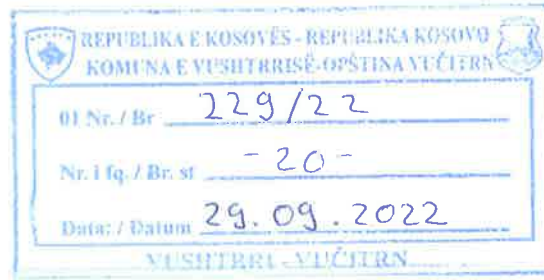 REPUBLIKA E KOSOVËS - REPUBLIKA KOSOVO
KOMUNA E VUSHTRRISË-OPŠTINA VUČITRN
01 Nr. / Br 229/22
Nr. i fq. / Br. st -20-
Data: / Datum 29.09.2022
VUSHTRRI - VUČITRN